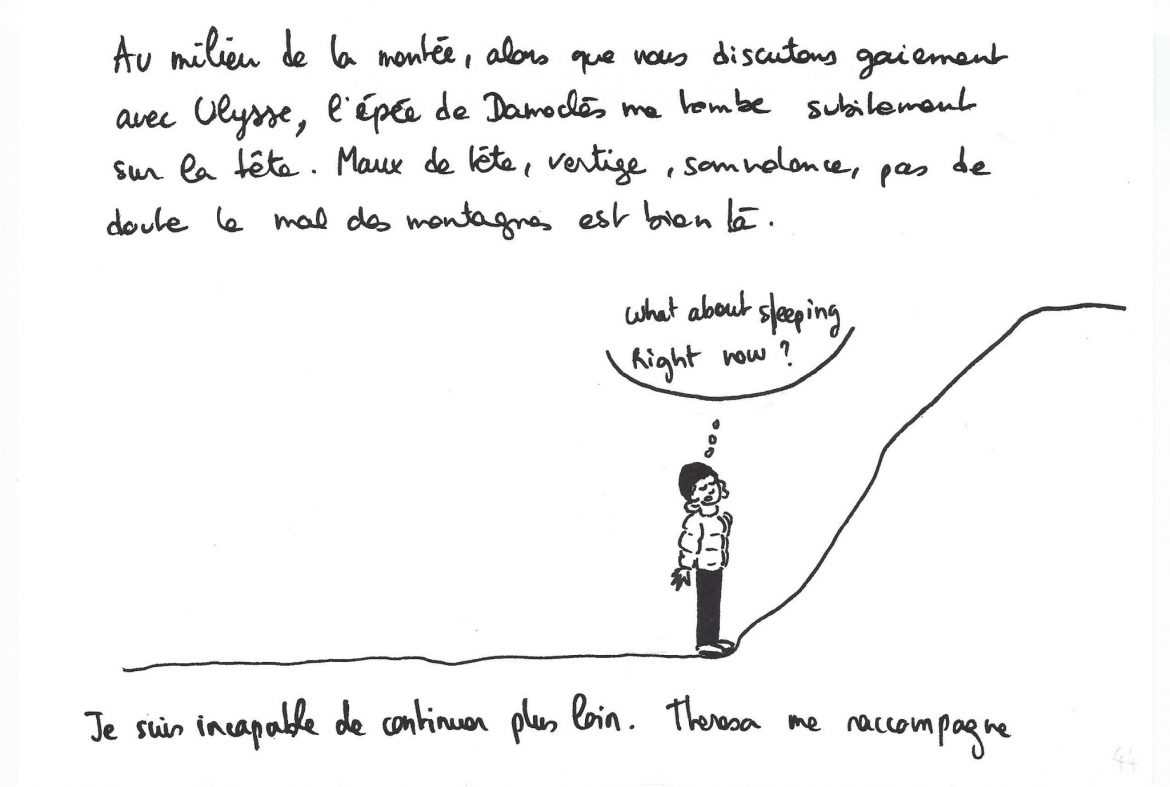 Au milieu de la montée, alors que nous discutons gaiement
avec Ulysse, l'épée de Damoclès me tombe subitement
sur la tête. Maux de tête, vertige, somnolence, pas de
doute le mal des montagnes est bien là.
What about sleeping
Right now ?
Je suis incapable de continuer plus loin. Theresa me raccompagne
44